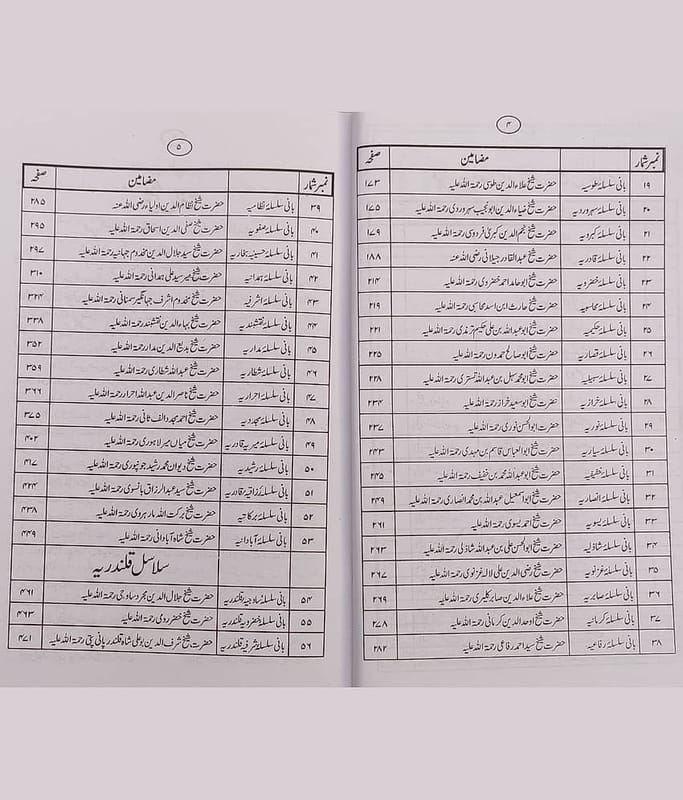 ۴
نمبر شمار مضامین صفحہ
۱۹ بانی سلسلۂ طوسیہ حضرت شیخ علاء الدین طوسی رحمۃ اللہ علیہ ۱۷۳
۲۰ بانی سلسلۂ سہروردیہ حضرت شیخ ضیاء الدین ابو نجیب سہروردی رحمۃ اللہ علیہ ۱۷۵
۲۱ بانی سلسلۂ کبرویہ حضرت شیخ نجم الدین کبریٰ فردوسی رحمۃ اللہ علیہ ۱۷۹
۲۲ بانی سلسلۂ قادریہ حضرت شیخ عبد القادر جیلانی رضی اللہ عنہ ۱۸۸
۲۳ بانی سلسلۂ خضرویہ حضرت شیخ ابو حامد احمد خضروی رحمۃ اللہ علیہ ۲۱۴
۲۴ بانی سلسلۂ محاسبیہ حضرت شیخ حارث ابن اسد محاسبی رحمۃ اللہ علیہ ۲۱۹
۲۵ بانی سلسلۂ حکیمیہ حضرت شیخ ابو عبد اللہ بن علی حکیم ترمذی رحمۃ اللہ علیہ ۲۲۱
۲۶ بانی سلسلۂ قصاریہ حضرت شیخ ابو صالح حمدون رحمۃ اللہ علیہ ۲۲۵
۲۷ بانی سلسلۂ سہیلیہ حضرت شیخ ابو محمد سہل بن عبد اللہ تستری رحمۃ اللہ علیہ ۲۲۸
۲۸ بانی سلسلۂ خرازیہ حضرت شیخ ابو سعید خراز رحمۃ اللہ علیہ ۲۳۴
۲۹ بانی سلسلۂ نوریہ حضرت ابو الحسن نوری رحمۃ اللہ علیہ ۲۳۷
۳۰ بانی سلسلۂ سیاریہ حضرت شیخ ابو العباس قاسم بن مہدی رحمۃ اللہ علیہ ۲۴۳
۳۱ بانی سلسلۂ خفیفیہ حضرت شیخ ابو عبد اللہ محمد بن خفیف رحمۃ اللہ علیہ ۲۴۵
۳۲ بانی سلسلۂ انصاریہ حضرت شیخ ابو اسمعیل عبد اللہ بن محمد انصاری رحمۃ اللہ علیہ ۲۴۹
۳۳ بانی سلسلۂ یسویہ حضرت شیخ احمد یسوی رحمۃ اللہ علیہ ۲۶۱
۳۴ بانی سلسلۂ شاذلیہ حضرت شیخ ابو الحسن علی بن عبد اللہ شاذلی رحمۃ اللہ علیہ ۲۶۳
۳۵ بانی سلسلۂ غزنویہ حضرت شیخ رضی الدین علی لالہ غزنوی رحمۃ اللہ علیہ ۲۶۷
۳۶ بانی سلسلۂ صابریہ حضرت شیخ علاء الدین صابر کلیری رحمۃ اللہ علیہ ۲۶۹
۳۷ بانی سلسلۂ کرمانیہ حضرت شیخ اوحد الدین کرمانی رحمۃ اللہ علیہ ۲۷۸
۳۸ بانی سلسلۂ رفاعیہ حضرت شیخ سید احمد رفاعی رحمۃ اللہ علیہ ۲۸۲
۵
نمبر شمار مضامین صفحہ
۳۹ بانی سلسلۂ نظامیہ حضرت شیخ نظام الدین اولیاء رضی اللہ عنہ ۲۸۵
۴۰ بانی سلسلۂ صفویہ حضرت شیخ صفی الدین اسحاق رحمۃ اللہ علیہ ۲۹۵
۴۱ بانی سلسلۂ حسینیہ بخاریہ حضرت شیخ سید جلال الدین مخدوم جہانیہ رحمۃ اللہ علیہ ۲۹۷
۴۲ بانی سلسلۂ ہمدانیہ حضرت شیخ میر سید علی ہمدانی رحمۃ اللہ علیہ ۳۱۰
۴۳ بانی سلسلۂ اشرفیہ حضرت شیخ مخدوم اشرف جہانگیر سمنانی رحمۃ اللہ علیہ ۳۲۴
۴۴ بانی سلسلۂ نقشبندیہ حضرت شیخ بہاء الدین نقشبند رحمۃ اللہ علیہ ۳۳۸
۴۵ بانی سلسلۂ مداریہ حضرت شیخ بدیع الدین مدار رحمۃ اللہ علیہ ۳۵۲
۴۶ بانی سلسلۂ شطاریہ حضرت شیخ عبد اللہ شطاری رحمۃ اللہ علیہ ۳۵۹
۴۷ بانی سلسلۂ احراریہ حضرت شیخ ناصر الدین عبد اللہ احرار رحمۃ اللہ علیہ ۳۶۶
۴۸ بانی سلسلۂ مجددیہ حضرت شیخ احمد مجدد الف ثانی رحمۃ اللہ علیہ ۳۷۵
۴۹ بانی سلسلۂ میریہ قادریہ حضرت شیخ میاں میر لاہوری رحمۃ اللہ علیہ ۴۰۲
۵۰ بانی سلسلۂ رشیدیہ حضرت شیخ دیوان محمد رشید جونپوری رحمۃ اللہ علیہ ۴۱۷
۵۱ بانی سلسلۂ رزاقیہ قادریہ حضرت شیخ سید عبد الرزاق بانسوی رحمۃ اللہ علیہ ۴۲۴
۵۲ بانی سلسلۂ برکاتیہ حضرت شیخ برکت اللہ مارہروی رحمۃ اللہ علیہ ۴۳۸
۵۳ بانی سلسلۂ آبادانیہ حضرت شیخ شاہ آبادانی رحمۃ اللہ علیہ ۴۴۹
سلاسل قلندریہ
۵۴ بانی سلسلۂ ساوجیہ قلندریہ حضرت شیخ جلال الدین مجرد ساوجی رحمۃ اللہ علیہ ۴۶۱
۵۵ بانی سلسلۂ خضرویہ قلندریہ حضرت شیخ خضر رومی رحمۃ اللہ علیہ ۴۶۳
۵۶ بانی سلسلۂ شرفیہ قلندریہ حضرت شیخ شرف الدین بو علی شاہ قلندر پانی پتی رحمۃ اللہ علیہ ۴۷۱